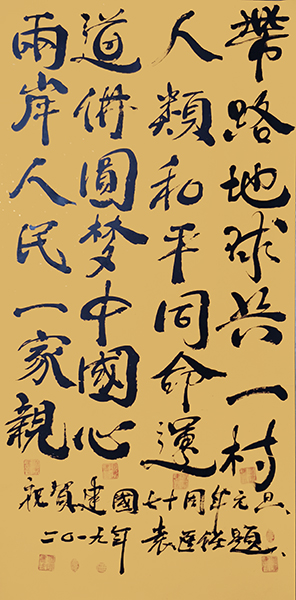 帶路地球共一村
人類和平同命運
道佛圓梦中國心
兩岸人民一家親
祝賀建國七十周年元旦
二〇一九年 袁題